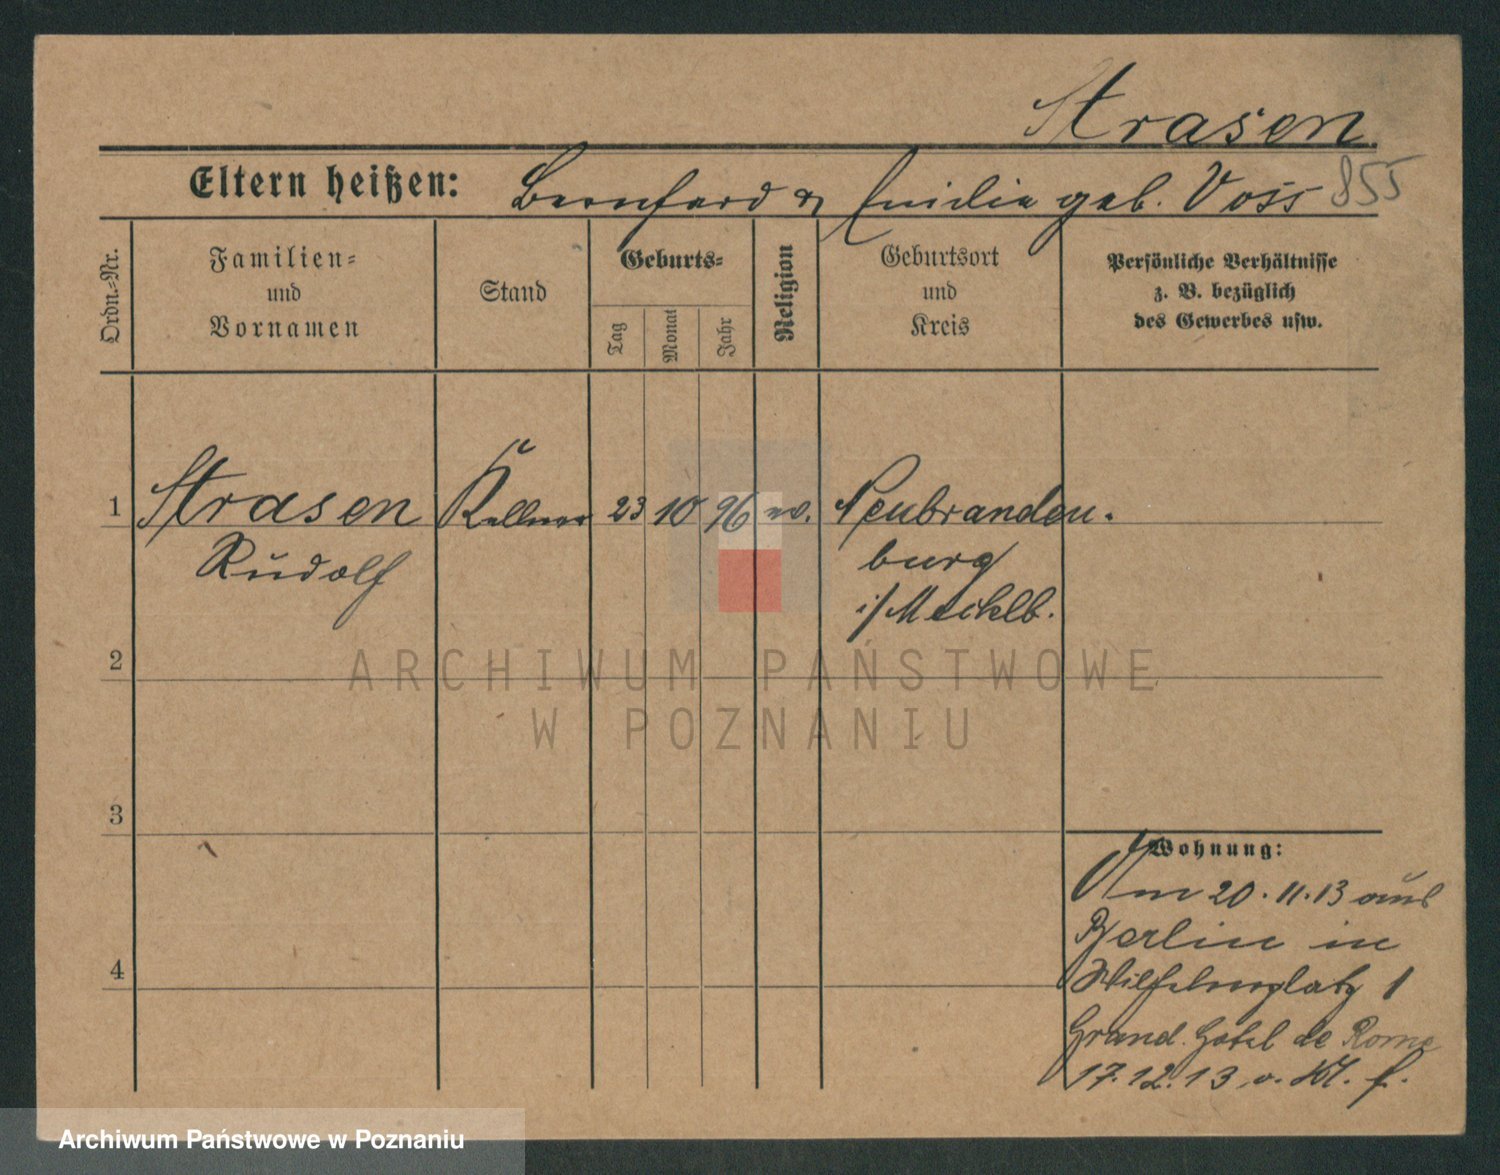 Strasen.
Eltern heißen: Bernhard & Emilie geb. Voss 855
Ordn.=Nr.
Familien=
und
Vornamen
Stand
Geburts=
Tag
Monat
Jahr
Religion
Geburtsort
und
Kreis
Persönliche Verhältnisse
z. B. bezüglich
des Gewerbes usw.
1 Strasen Kellner 23 10 96 ev. Neubranden.
Rudolf burg
i/Mecklb.
ARCHIWUM PAŃSTWOWE
2
W POZNANIU
3
Wohnung:
Am 20.11.13 aus
Berlin in
4
Wilhelmplatz 1
Grand Hotel de Rome
17.12.13 v.
Archiwum Państwowe w Poznaniu